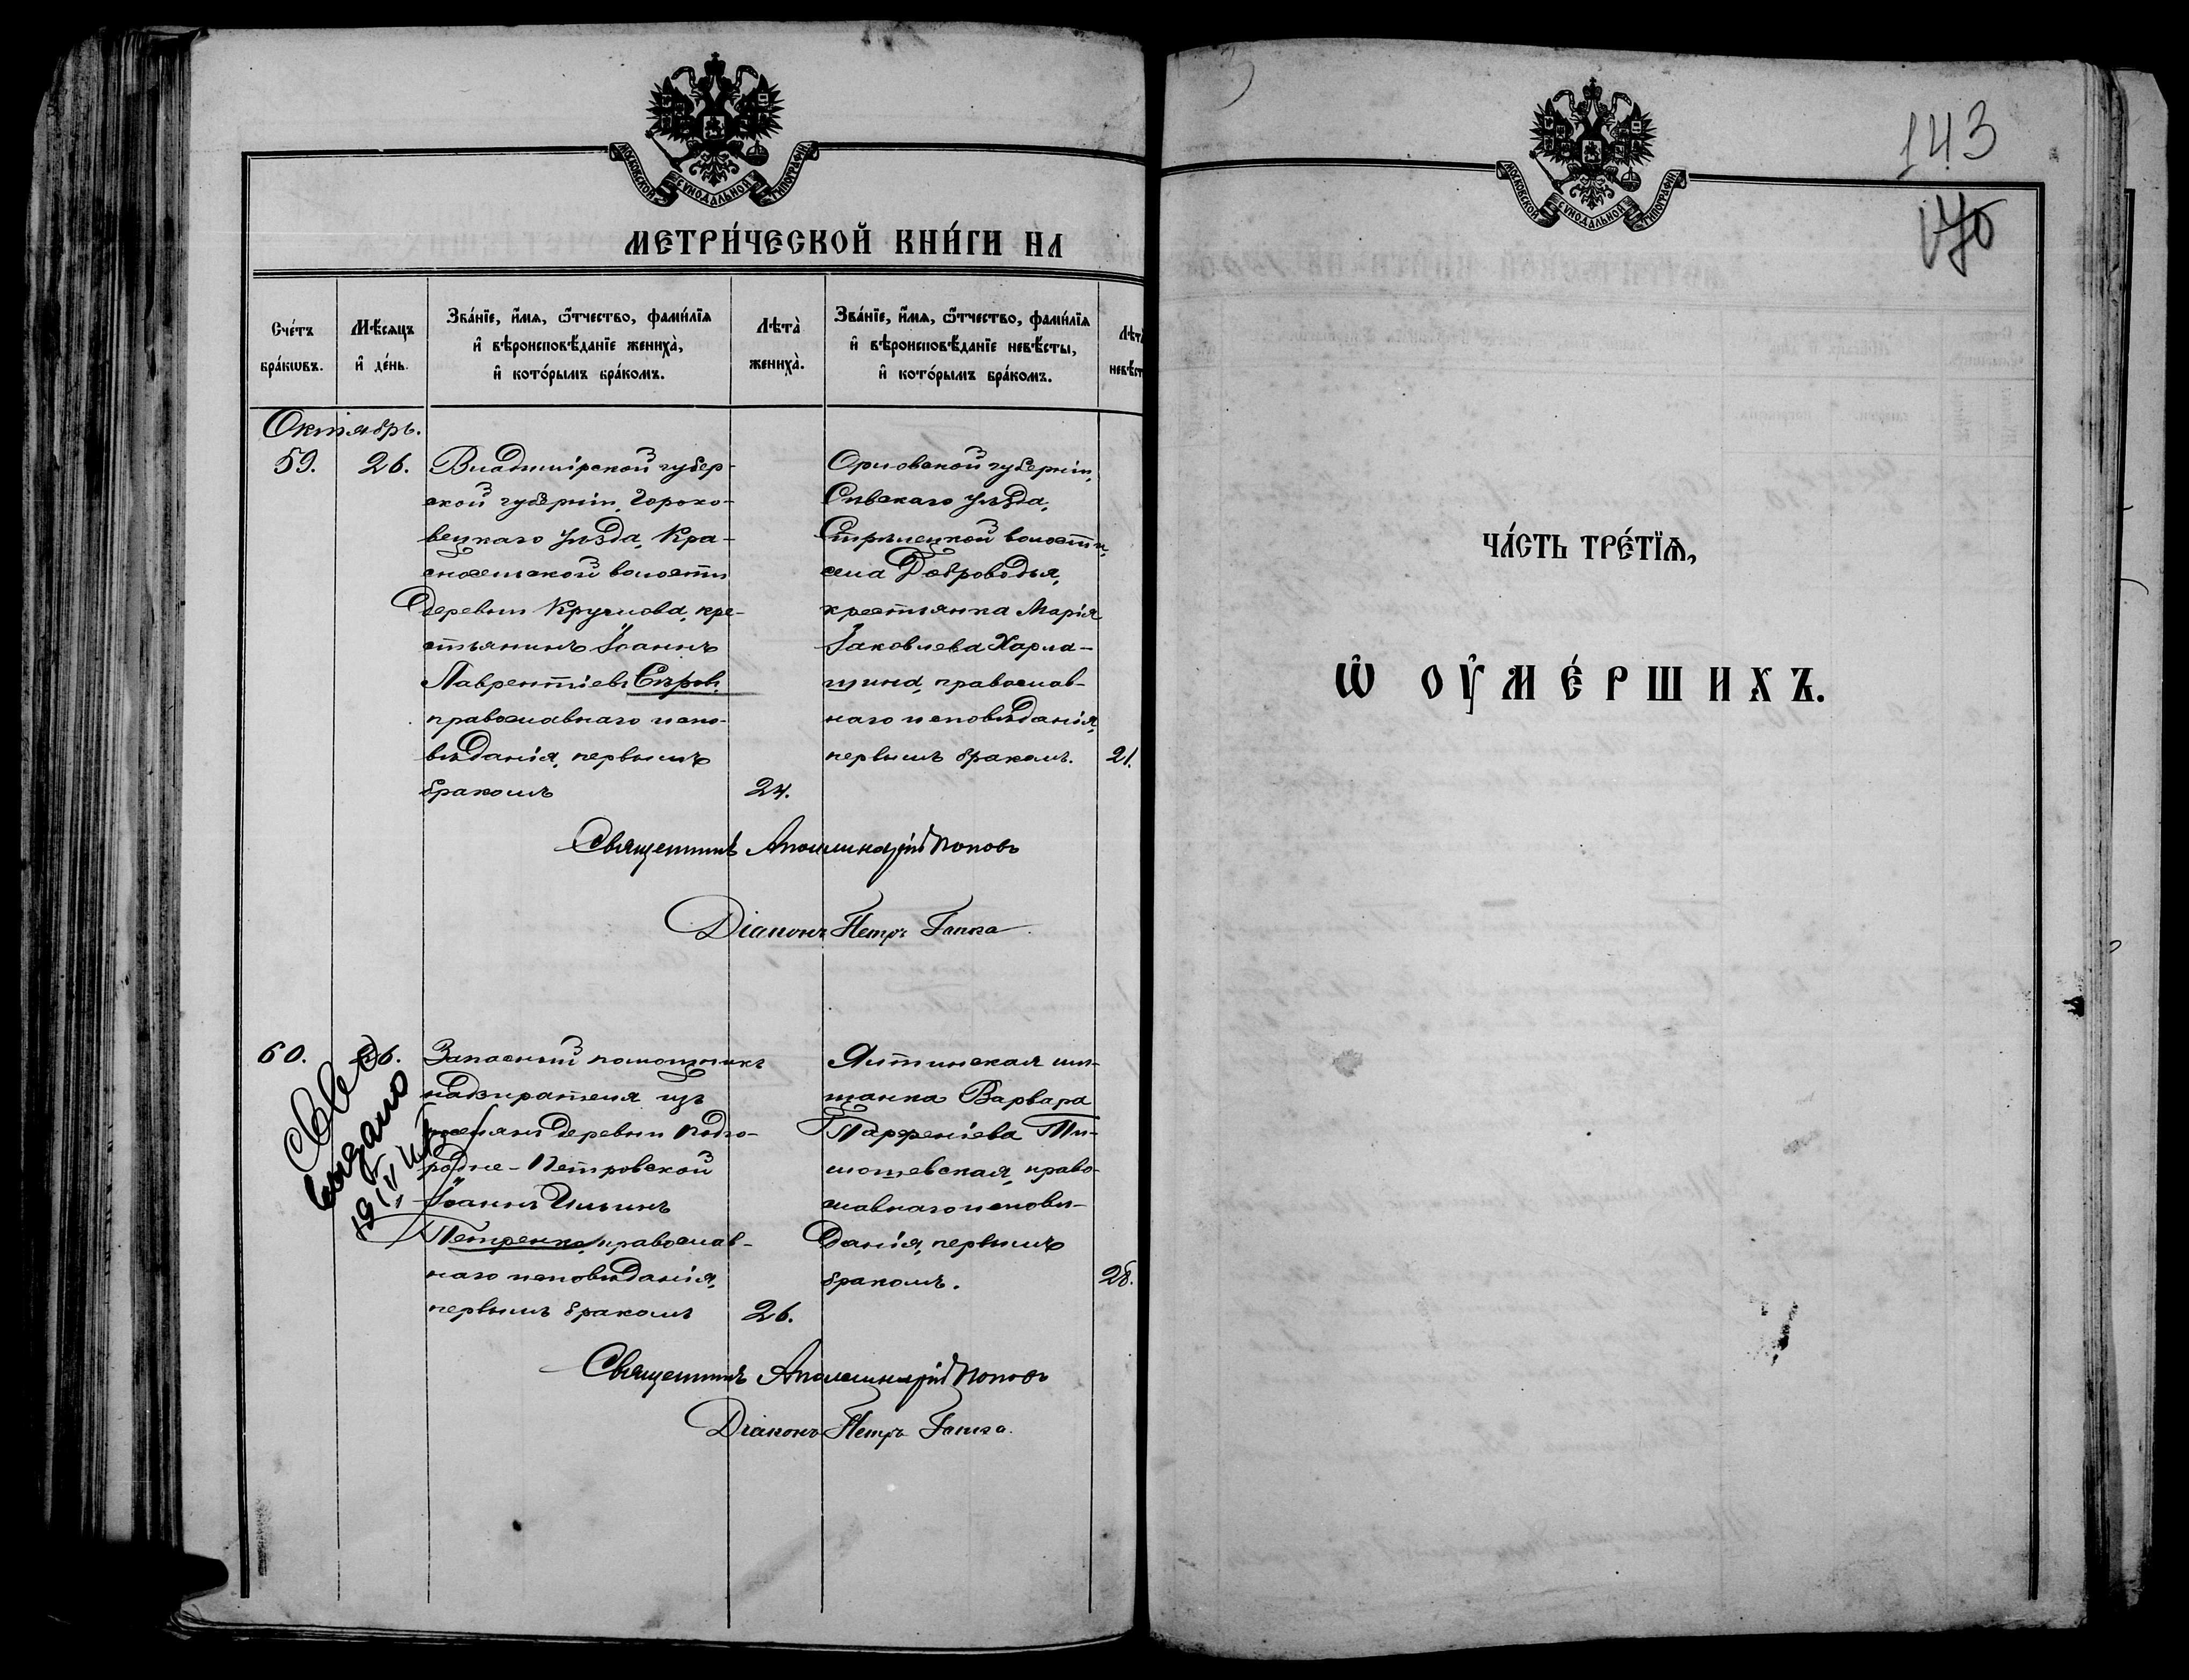 МОСКОВСКОЙ СѴНОДАЛЬНОЙ ТИПОГРАФІИ
МЕТРИ́ЧЕСКОЙ КНИ́ГИ НА
Сче́тъ бра́кѡвъ.
Мѣ́сяцъ и҆ де́нь.
Зва́нїе, и҆́мѧ, ѻ҆́тчество, фами́лїѧ и҆ вѣроисповѣ́данїе жениха̀, и҆ кото́рымъ бра́комъ.
Лѣта̀ жениха̀.
Зва́нїе, и҆́мѧ, ѻ҆́тчество, фами́лїѧ и҆ вѣроисповѣ́данїе невѣ́сты, и҆ кото́рымъ бра́комъ.
Лѣта̀
Октябрь.
59. 26.
Владимірской губер-
ской губерніи, Горохо-
вецкаго уѣзда, Кра-
сносельской волости
деревни Круглова, кре-
стьянинъ Іоаннъ
Лаврентіевъ Сѣров,
православнаго испо-
вѣданія, первымъ
бракомъ 24.
Орловской губерніи,
Сѣвскаго уѣзда,
Стрѣлецкой волости,
села Доброводья,
крестьянка Марія
Іаковлева Харла-
щина, православ-
наго исповѣданія,
первымъ бракомъ. 21.
Священникъ Аполлинарій Поповъ
Діаконъ Петръ Гапка
60. 26.
Запасный помощникъ
надзирателя изъ
поселянъ деревни Подго-
родне-Петровской
Іоаннъ Ильинъ
Петренко, православ-
наго исповѣданія,
первымъ бракомъ 26.
Ялтинская мѣ-
щанка Варвара
Парѳеніева Ти-
мошевская, право-
славнаго исповѣ-
данія, первымъ
бракомъ. 28.
Священникъ Аполлинарій Поповъ
Діаконъ Петръ Гапка.
143
МОСКОВСКОЙ СѴНОДАЛЬНОЙ ТИПОГРАФІИ
ЧА́СТЬ ТРЕ́ТЇѦ,
Ѡ҆ ОУ҆МЕ́РШИХЪ.